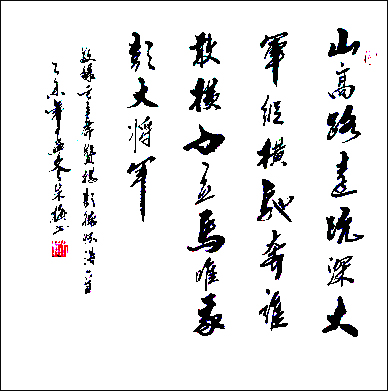 山高路遠坑深大
軍縱橫馳奔誰
敢橫刀立馬唯我
彭大將軍
敬録毛主席贊揚彭德懷詩一首
年孟冬